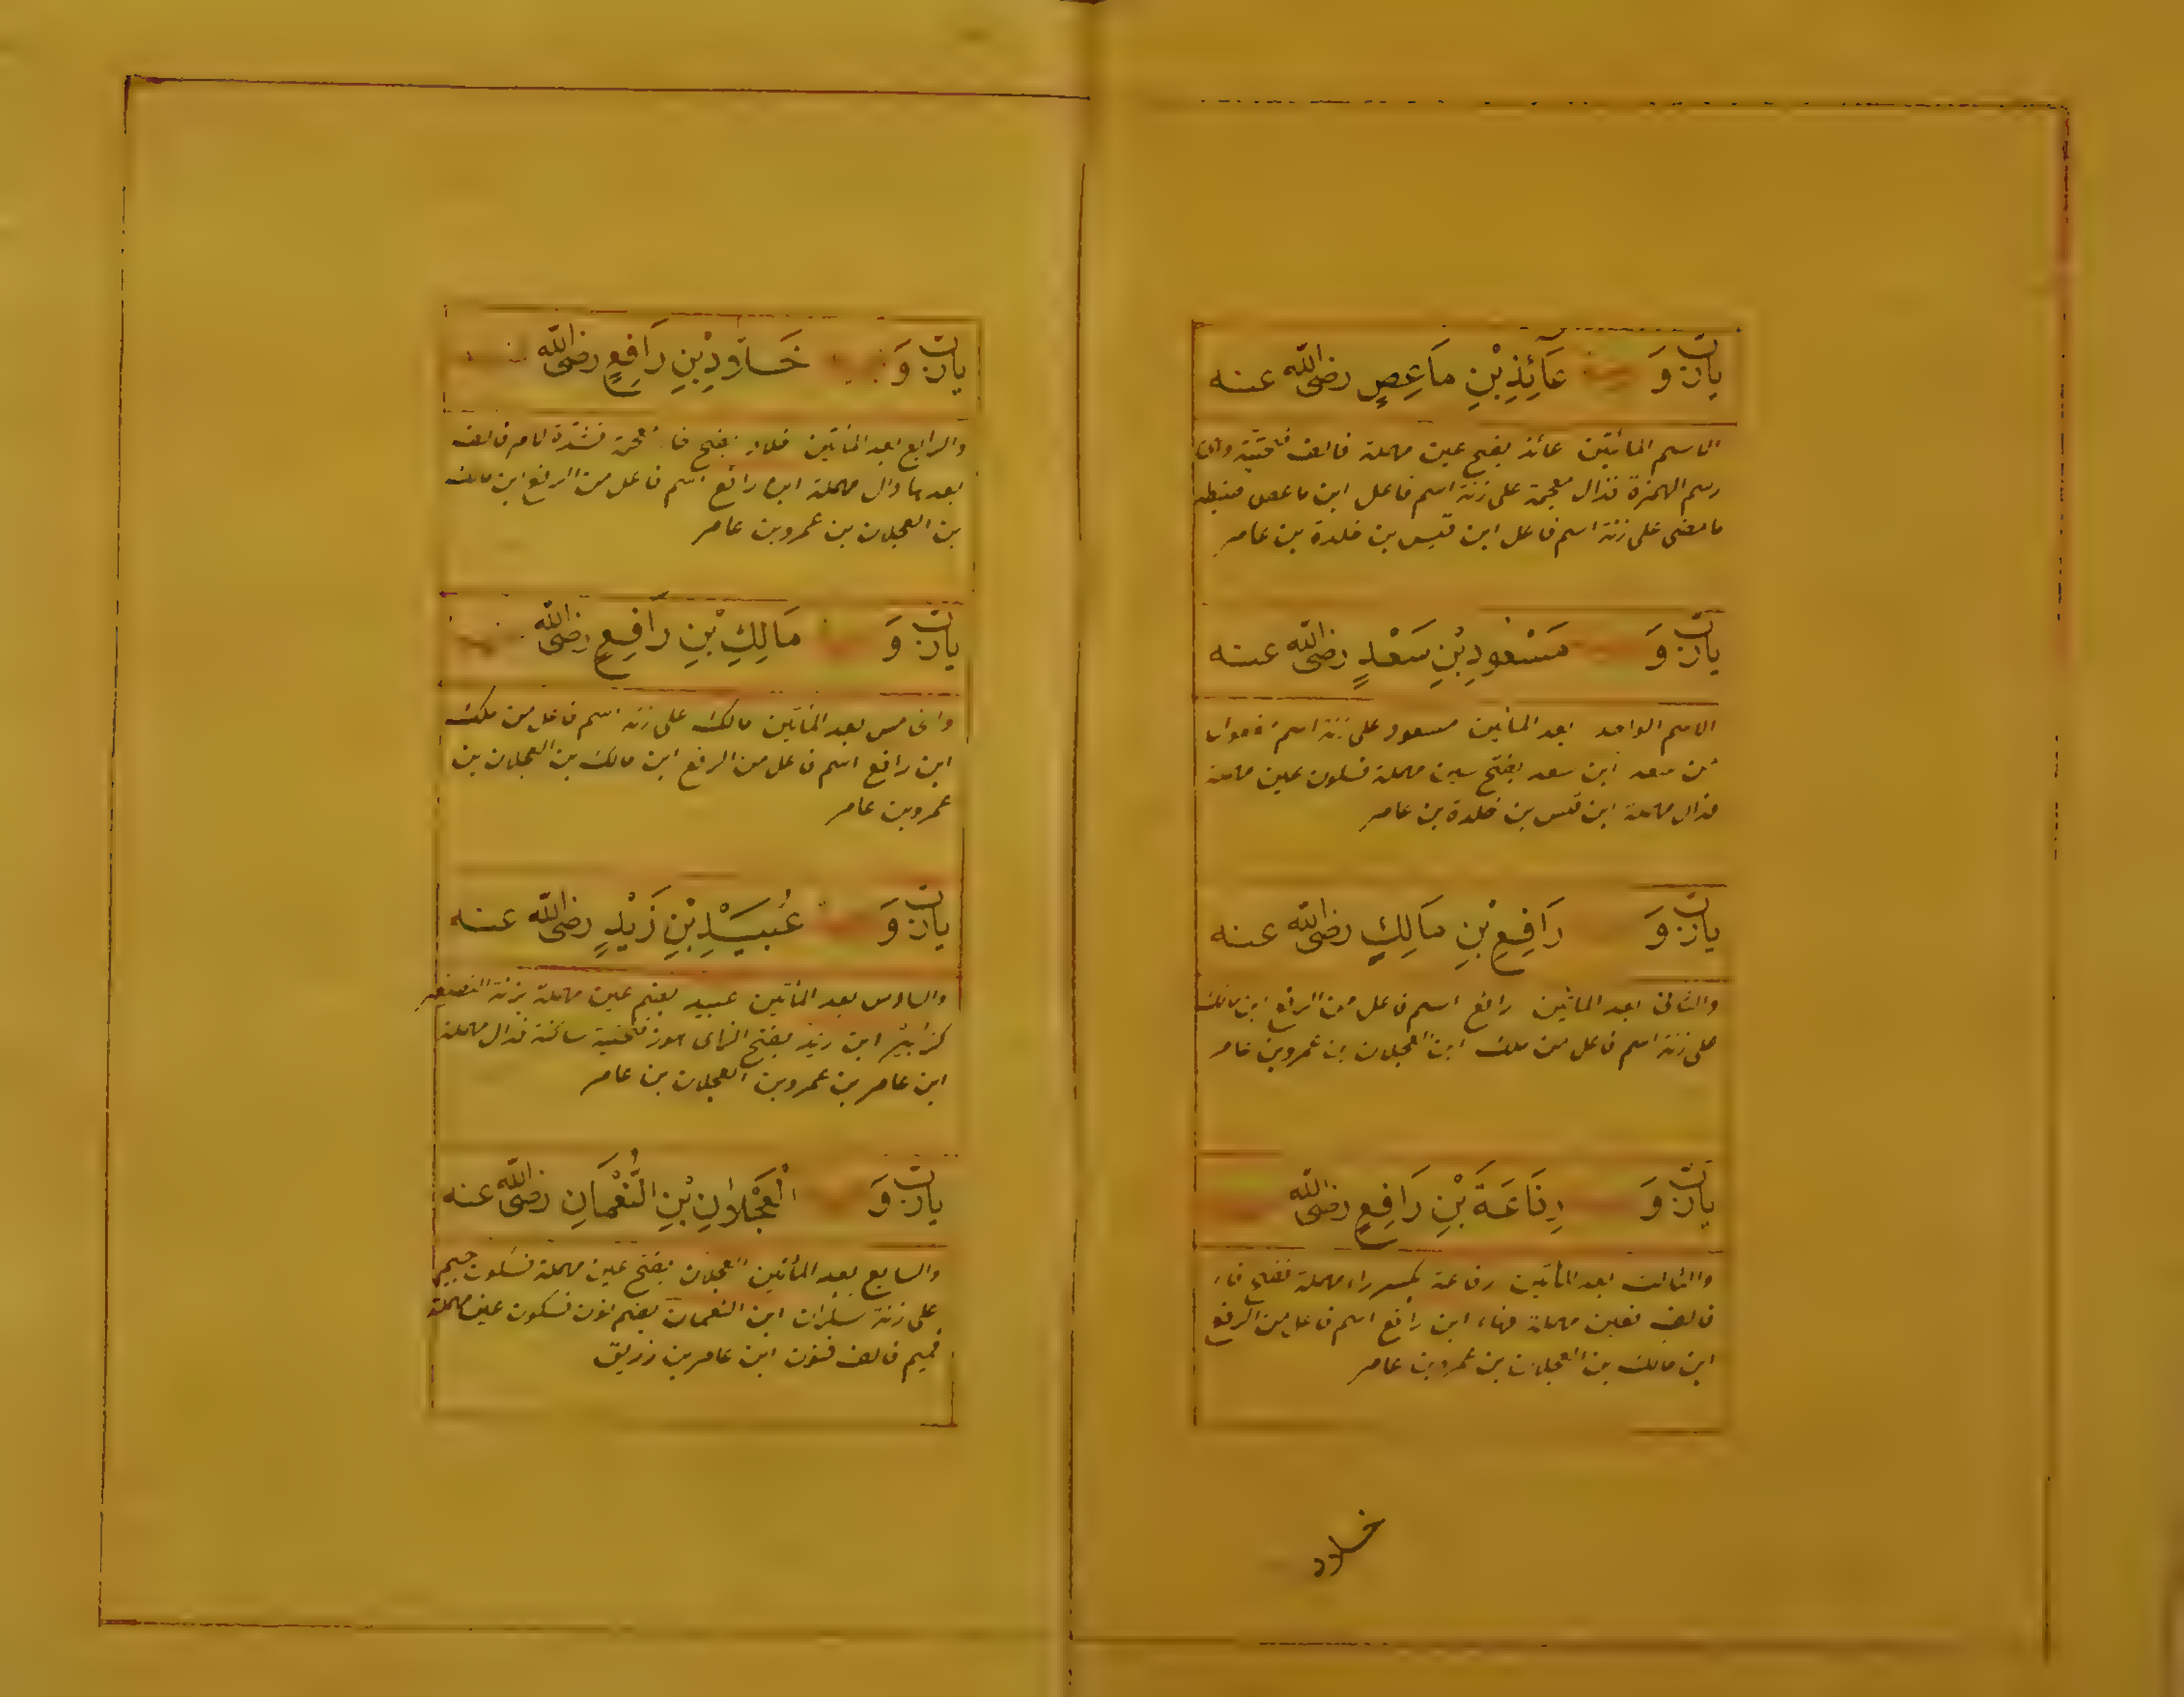 يا رب و عَائِذِ بْنِ مَاعِصٍ رضى الله عنه
الاسم المأتين عائذ بفتح عين مهملة فالف فتحتية
رسم الهمزة فذال معجمة على زنة اسم فاعل ابن ماعص
على زنة اسم فاعل ابن قيس بن خلدة بن عامر
يا رب و مَسْعُودِ بْنِ سَعْدٍ رضى الله عنه
الاسم الواحد بعد المأتين مسعود على زنة اسم
من سعد ابن سعد بفتح سين مهملة فسكون عين مهملة
فدال مهملة ابن قيس بن خلدة بن عامر
يا رب و رَافِعِ بْنِ مَالِكٍ رضى الله عنه
والثانى بعد المأتين رافع اسم فاعل من الرفع ابن مالك
على زنة اسم فاعل من ملك ابن العجلان بن عمرو بن عامر
يا رب و رِفَاعَةَ بْنِ رَافِعٍ رضى الله
والثالث بعد المأتين رفاعة بكسر راء مهملة ففتح فاء
فالف فعين مهملة فهاء ابن رافع اسم فاعل من الرفع
ابن مالك بن العجلان بن عمرو بن عامر
خلاد
يا رب و خَلَّادِ بْنِ رَافِعٍ رضى الله
والرابع بعد المأتين خلاد بفتح خاء معجمة فشدة لام فالف
بعدها دال مهملة ابن رافع اسم فاعل من الرفع ابن مالك
بن العجلان بن عمرو بن عامر
يا رب و مَالِكِ بْنِ رَافِعٍ رضى الله
والخامس بعد المأتين مالك على زنة اسم فاعل من ملك
ابن رافع اسم فاعل من الرفع ابن مالك بن العجلان بن
عمرو بن عامر
يا رب و عُبَيْدِ بْنِ زَيْدٍ رضى الله عنه
والسادس بعد المأتين عبيد بضم عين مهملة بزنة التصغير
كزبير ابن زيد بفتح الزاى هوز فتحتية ساكنة فدال مهملة
ابن عامر بن عمرو بن العجلان بن عامر
يا رب و الْعَجْلَانِ بْنِ النُّعْمَانِ رضى الله عنه
والسابع بعد المأتين العجلان بفتح عين مهملة فسكون جيم
على زنة سكران ابن النعمان بضم نون فسكون عين مهملة
فميم فالف فنون ابن عامر بن زريق